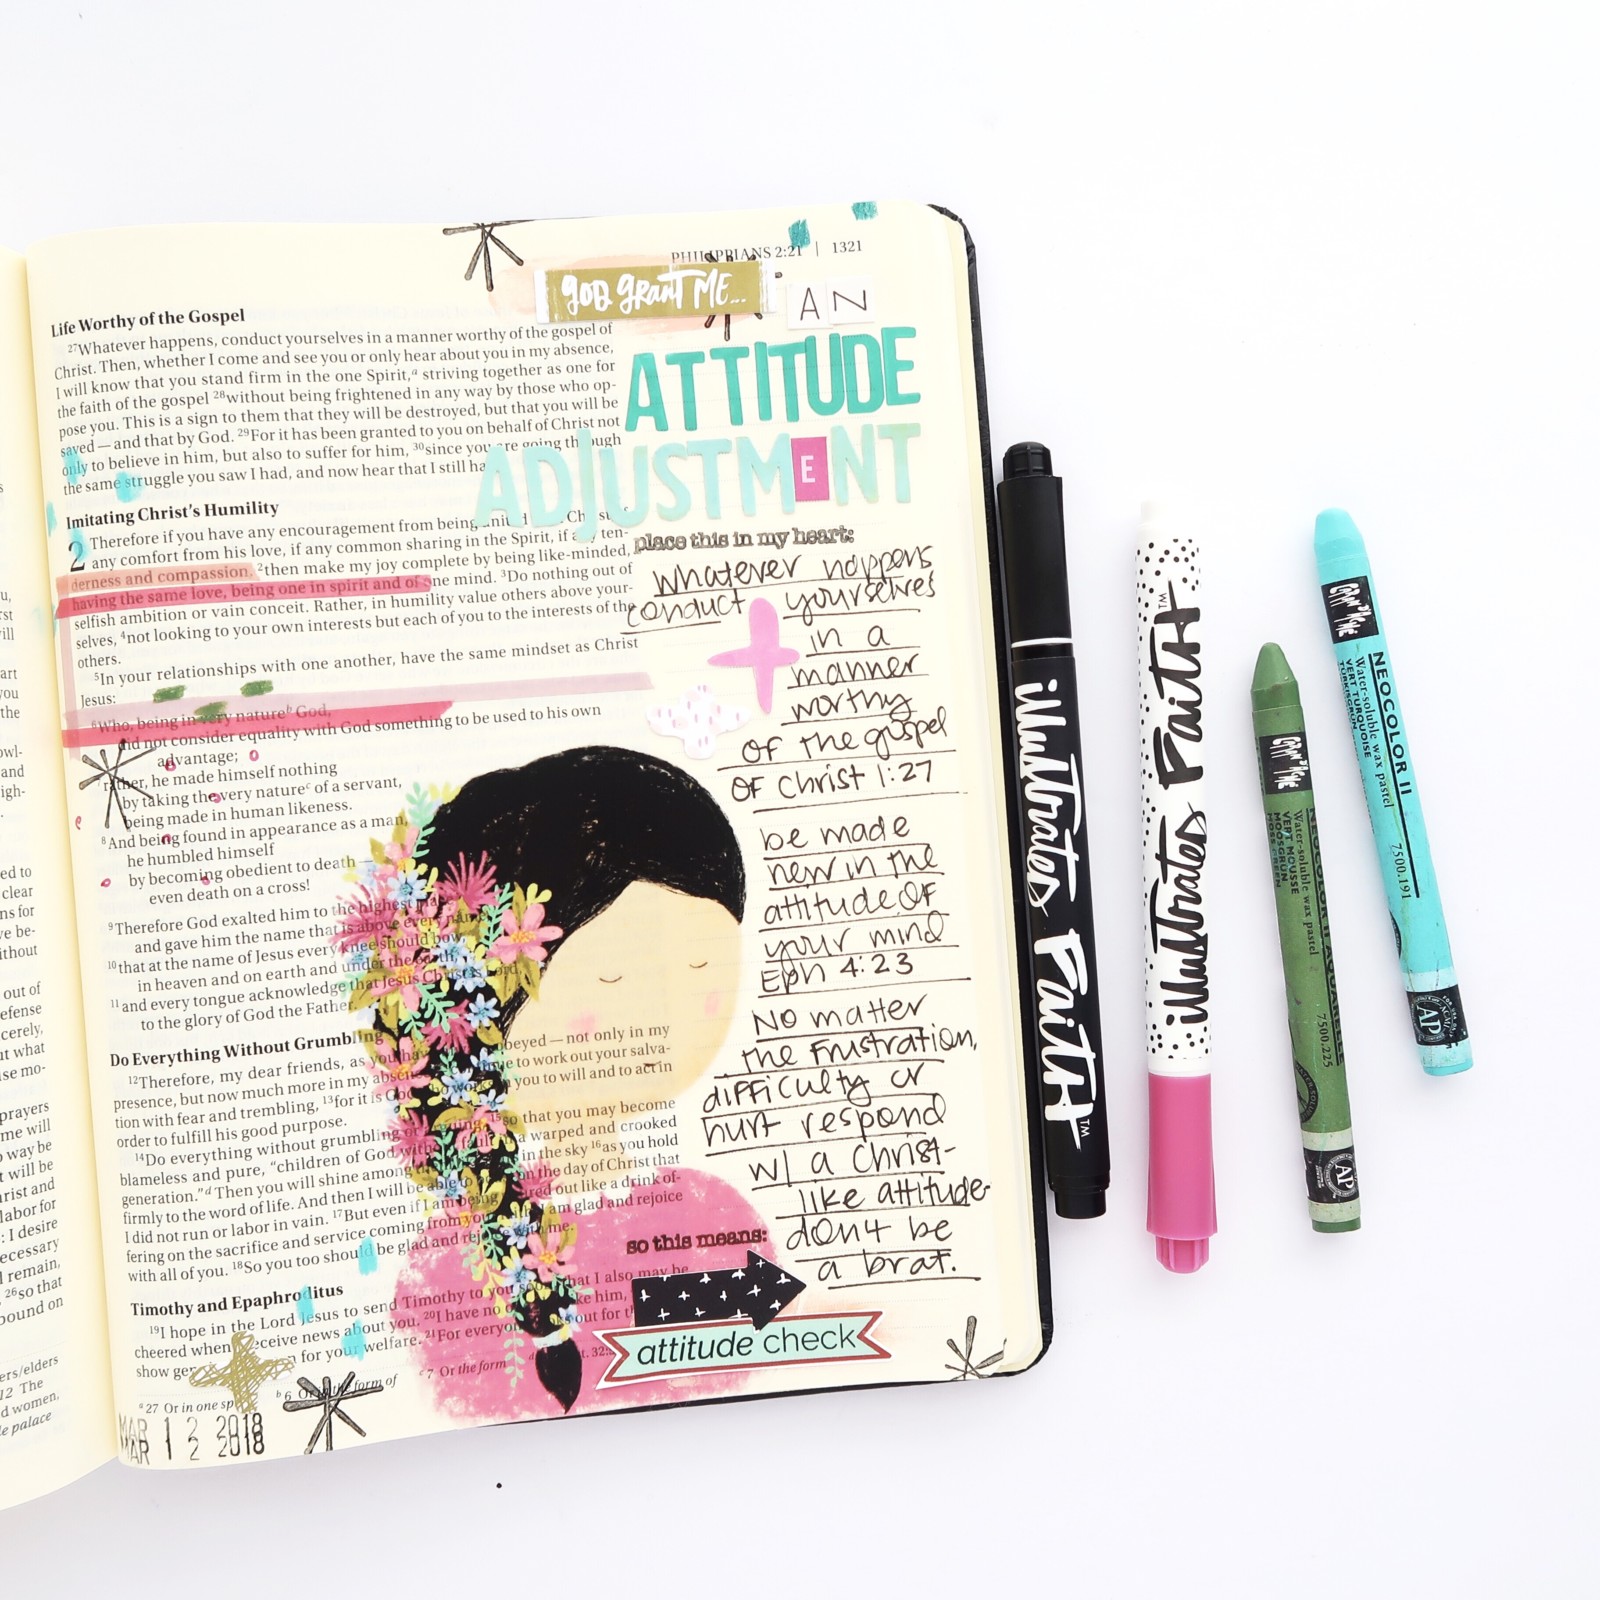 PHILIPPIANS 2:21 | 1321
GOD GRANT ME...
AN
ATTITUDE
ADJUSTMENT
place this in my heart:
whatever happens
conduct yourselves
in a
manner
worthy
of the gospel
of Christ 1:27
be made
new in the
attitude of
your mind
Eph 4:23
No matter
the frustration,
difficulty or
hurt respond
w/ a Christ-
like attitude-
don't be
a brat.
so this means:
attitude check
Life Worthy of the Gospel
27Whatever happens, conduct yourselves in a manner worthy of the gospel of
Christ. Then, whether I come and see you or only hear about you in my absence,
I will know that you stand firm in the one Spirit,a striving together as one for
the faith of the gospel 28without being frightened in any way by those who op-
pose you. This is a sign to them that they will be destroyed, but that you will be
saved — and that by God. 29For it has been granted to you on behalf of Christ not
only to believe in him, but also to suffer for him, 30since you are going through
the same struggle you saw I had, and now hear that I still ha
Imitating Christ's Humility
2 Therefore if you have any encouragement from being united Christ,
any comfort from his love, if any common sharing in the Spirit, if any ten-
derness and compassion, 2then make my joy complete by being like-minded,
having the same love, being one in spirit and of one mind. 3Do nothing out of
selfish ambition or vain conceit. Rather, in humility value others above your-
selves, 4not looking to your own interests but each of you to the interests of the
others.
5In your relationships with one another, have the same mindset as Christ
Jesus:
6Who, being in very natureb God,
did not consider equality with God something to be used to his own
advantage;
7rather, he made himself nothing
by taking the very naturec of a servant,
being made in human likeness.
8And being found in appearance as a man,
he humbled himself
by becoming obedient to death —
even death on a cross!
9Therefore God exalted him to the highest place
and gave him the name that is above every name,
10that at the name of Jesus every knee should bow,
in heaven and on earth and under the earth,
11and every tongue acknowledge that Jesus Christ is Lord,
to the glory of God the Father.
Do Everything Without Grumbling
12Therefore, my dear friends, as you have obeyed — not only in my
presence, but now much more in my absence to work out your salva-
tion with fear and trembling, 13for it is God who works you to will and to act in
order to fulfill his good purpose.
14Do everything without grumbling or arguing, 15so that you may become
blameless and pure, “children of God without fault a warped and crooked
generation.”d Then you will shine among in the sky 16as you hold
firmly to the word of life. And then I will be able to on the day of Christ that
I did not run or labor in vain. 17But even if I am being red out like a drink of-
fering on the sacrifice and service coming from your am glad and rejoice
with all of you. 18So you too should be glad and rejoice with me.
Timothy and Epaphroditus
19I hope in the Lord Jesus to send Timothy to you soon, that I also may be
cheered when receive news about you. 20I have no ke him,
show gen for your welfare. 21For everyon out for t
a 27 Or in one sp b 6 Or in the form of c 7 Or the form d t. 32:5
MAR 1 2 2018
MAR 1 2 2018
illustrated Faith™
illustrated Faith™
CARAN D'ACHE
NEOCOLOR II AQUARELLE
Water-soluble wax pastel
VERT MOUSSE
MOOSGRÜN
MOSS GREEN
7500.225
AP
CARAN D'ACHE
NEOCOLOR II
Water-soluble wax pastel
VERT TURQUOISE
TÜRKISGRÜN
7500.191
AP